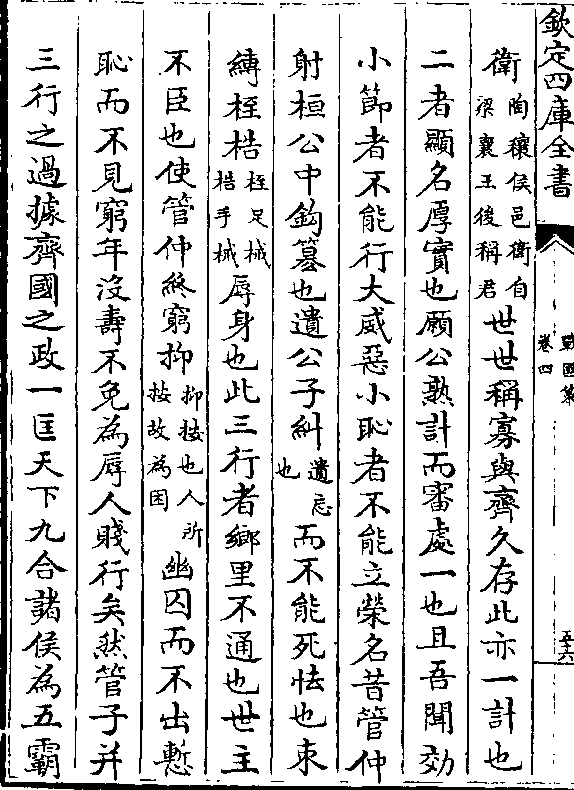 欽定四庫全書
戰國策
卷四
五十六
衛陶穰侯邑衛自梁襄王後稱君世世稱寡與齊久存此亦一計也
二者顯名厚實也願公熟計而審處一也且吾聞効
小節者不能行大威惡小恥者不能立榮名昔管仲
射桓公中鈎簒也遺公子糾遺忘也而不能死怯也束
縛桎梏桎足械梏手械辱身也此三行者鄉里不通也世主
不臣也使管仲終窮抑抑按也人所按故為困幽囚而不出慙
恥而不見窮年沒壽不免為辱人賤行矣然管子并
三行之過據齊國之政一匡天下九合諸侯為五霸